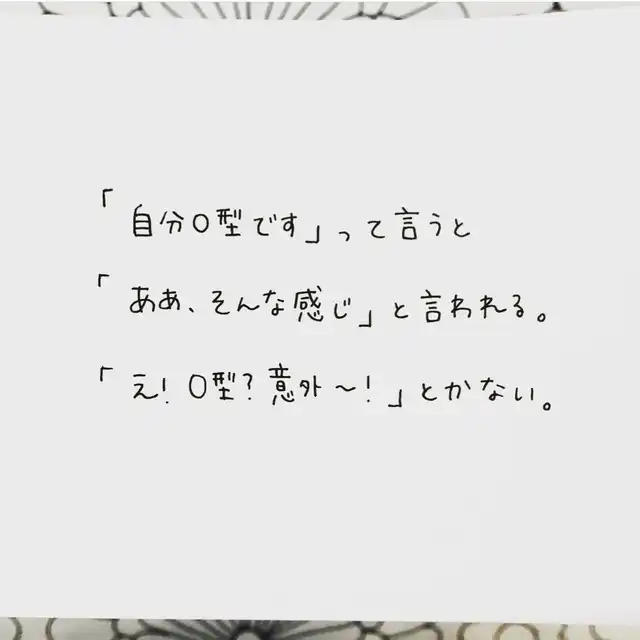 「自分O型です」って言うと
「ああ、そんな感じ」と言われる。
「え!O型?意外〜!」とかない。